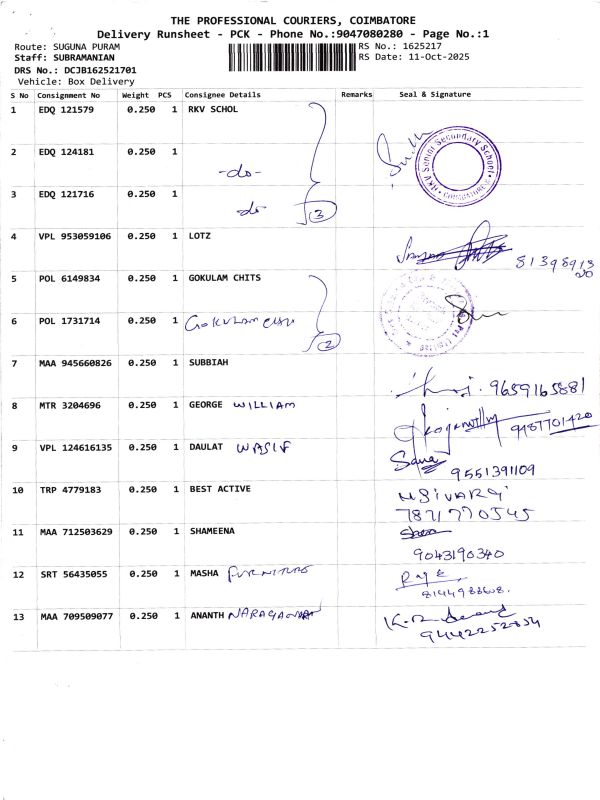 THE PROFESSIONAL COURIERS, COIMBATORE
Delivery Runsheet - PCK - Phone No.:9047080280 - Page No.:1
Route: SUGUNA PURAM
RS No.: 1625217
Staff: SUBRAMANIAN
RS Date: 11-Oct-2025
DRS No.: DCJB162521701
Vehicle: Box Delivery
S No Consignment No Weight PCS Consignee Details Remarks Seal & Signature
1 EDQ 121579 0.250 1 RKV SCHOL
2 EDQ 124181 0.250 1 -do-
3 EDQ 121716 0.250 1 do 3
RKV Senior Secondary School
4 VPL 953059106 0.250 1 LOTZ
5 POL 6149834 0.250 1 GOKULAM CHITS
6 POL 1731714 0.250 1 GOKULAM 2
7 MAA 945660826 0.250 1 SUBBIAH 9659165881
8 MTR 3204696 0.250 1 GEORGE WILLIAM
9 VPL 124616135 0.250 1 DAULAT WASIF 9551391109
10 TRP 4779183 0.250 1 BEST ACTIVE
11 MAA 712503629 0.250 1 SHAMEENA 9043190340
12 SRT 56435055 0.250 1 MASHA FURNITURE
13 MAA 709509077 0.250 1 ANANTH